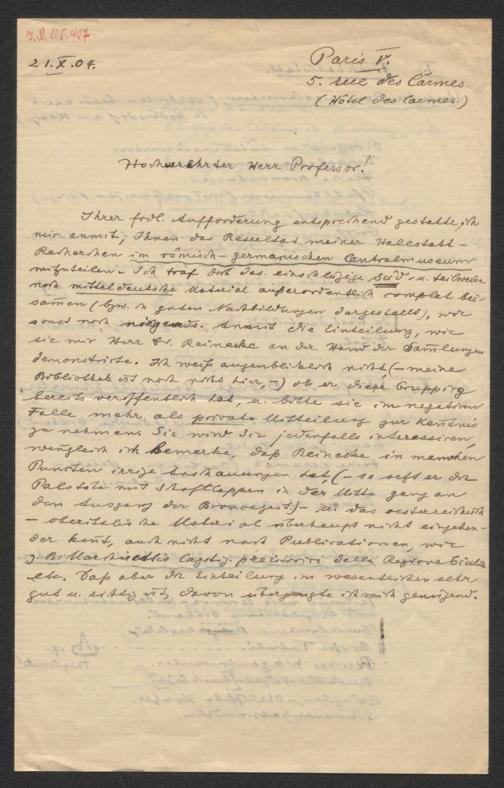 J.N. 115.927
21.X.04.
Paris V.
5. rue des Carmes.
(Hôtel des Carmes.)
Hochverehrter Herr Professor!
Ihrer frdl. Aufforderung entsprechend gestatte ich
mir anmit, Ihnen das Resultat meiner Hallstatt-
Recherchen im römisch-germanischen Centralmuseum
mitzuteilen. Ich traf dort das einschlägige Süd- u. teilweise
noch mitteldeutsche Material außerordentlich complet bei-
samen (bzw. in guten Nachbildungen dargestellt), wie
sonst noch nirgends. Anmit die Einteilung, wie
sie mir Herr Dr. Reinecke an der Hand der Samlungen
demonstrirte. Ich weiß augenblicklich nicht, (– meine
Bibliothek ist noch nicht hier, –) ob er diese Grupping
bereits veröffentlicht hat, u. bitte sie im negativen
Falle mehr als private Mitteilung zur Kentnis
zu nehmen. Sie wird Sie jedenfalls interessiren,
wenngleich ich bemerke, daß Reinecke in manchen
Punkten irrige Anschauungen hat, (– so setzt er die
Palstäbe mit Schaftlappen in der Mitte ganz an
den Ausgang der Bronzezeit) – u. das oesterreichisch
– oberitalische Material überhaupt nicht eingehen-
der kent, auch nicht nach Publicationen, wie
z. B. Marchesettis preistorici della Regione Giulia
etc. Daß aber die Einteilung im wesentlichen sehr
gut u. richtig ist, davon überzeugte ich mich genügend.